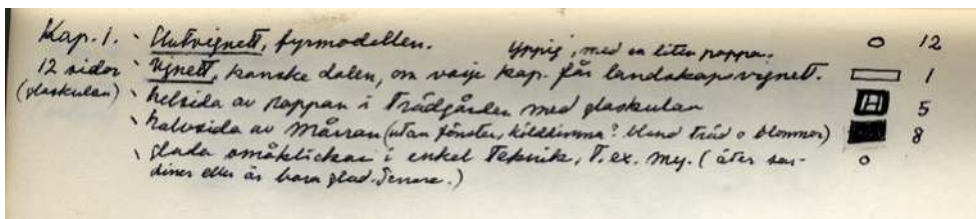 Kap. 1. Slutvignett, fyrmodellen. Yppig, med en liten pappa. 12
12 sidor Vignett, kanske dalen, om varje kap. får landskapsvignett. 1
(glaskulan) helsida av pappan i Trädgården med glaskulan 5
halvsida av Mårran (utan fönster, kölddimma? bland träd o blommor) 8
glada småklickar i enkel Teknik, T.ex. My. (äter sar-
diner eller är bara glad. Senare.)